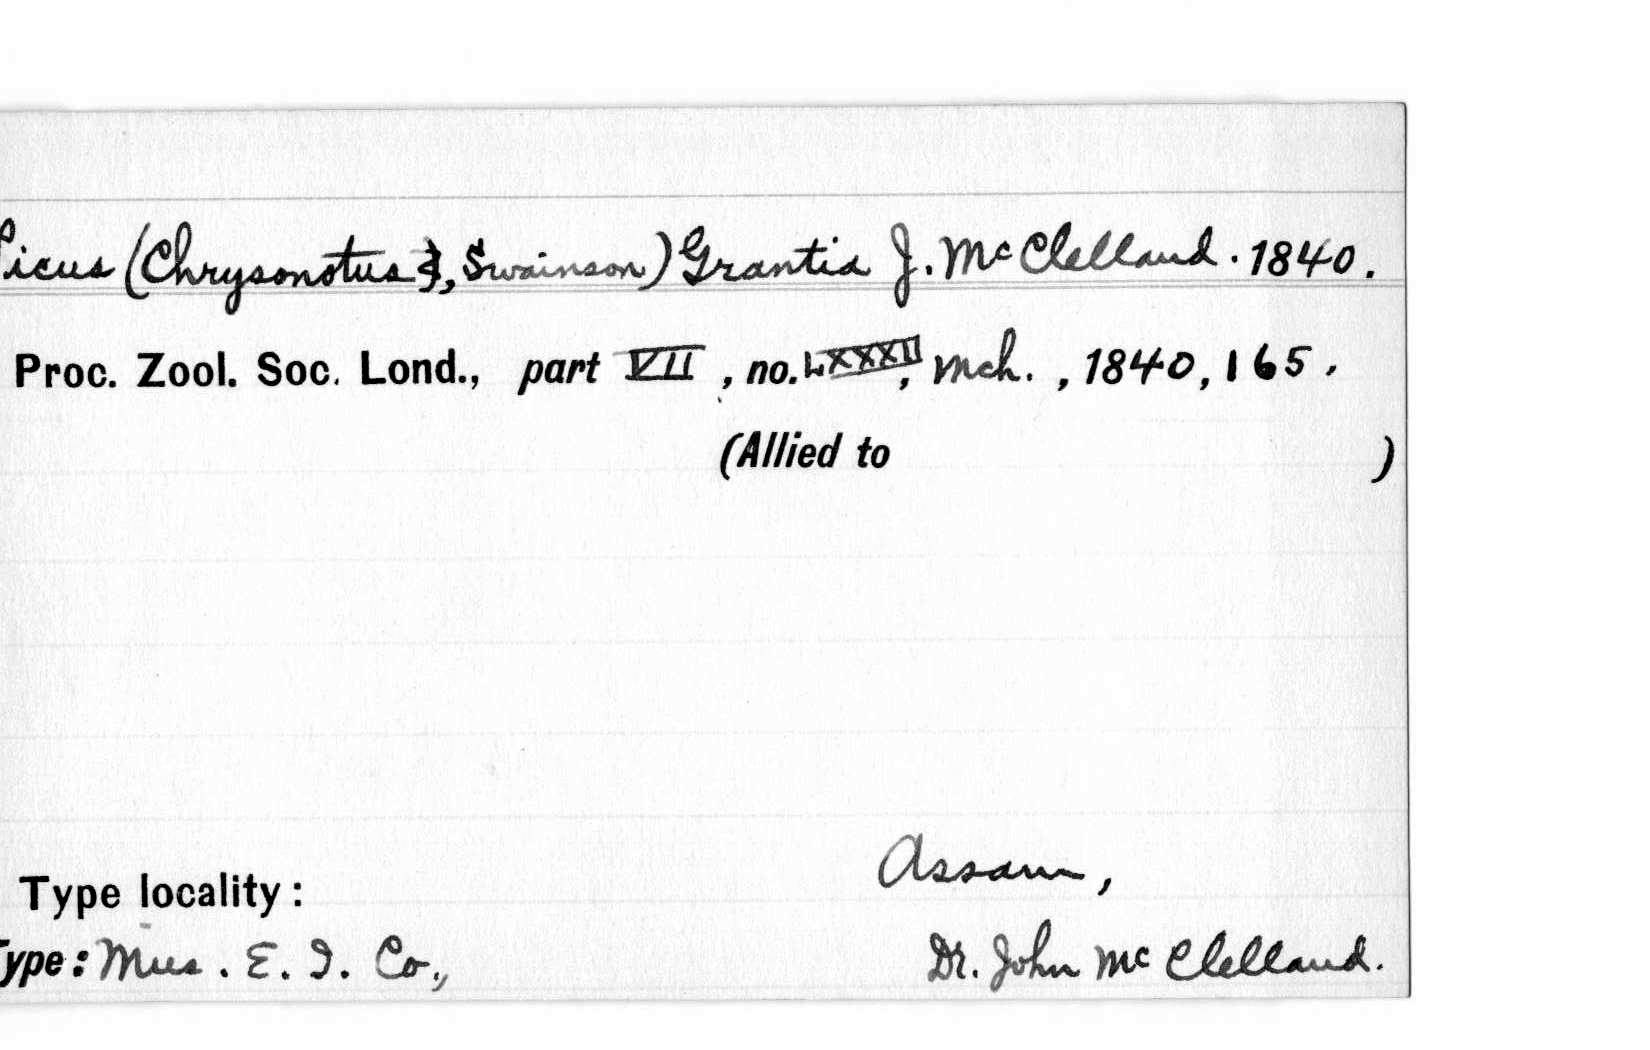 Picus (Chrysonotus ?, Swainson) Grantia J. McClelland. 1840.
Proc. Zool. Soc. Lond., part VII, no. LXXXII, Mch., 1840, 165.
(Allied to )
Assam,
Type locality:
Type: Mus. E. I. Co., Dr. John McClelland.